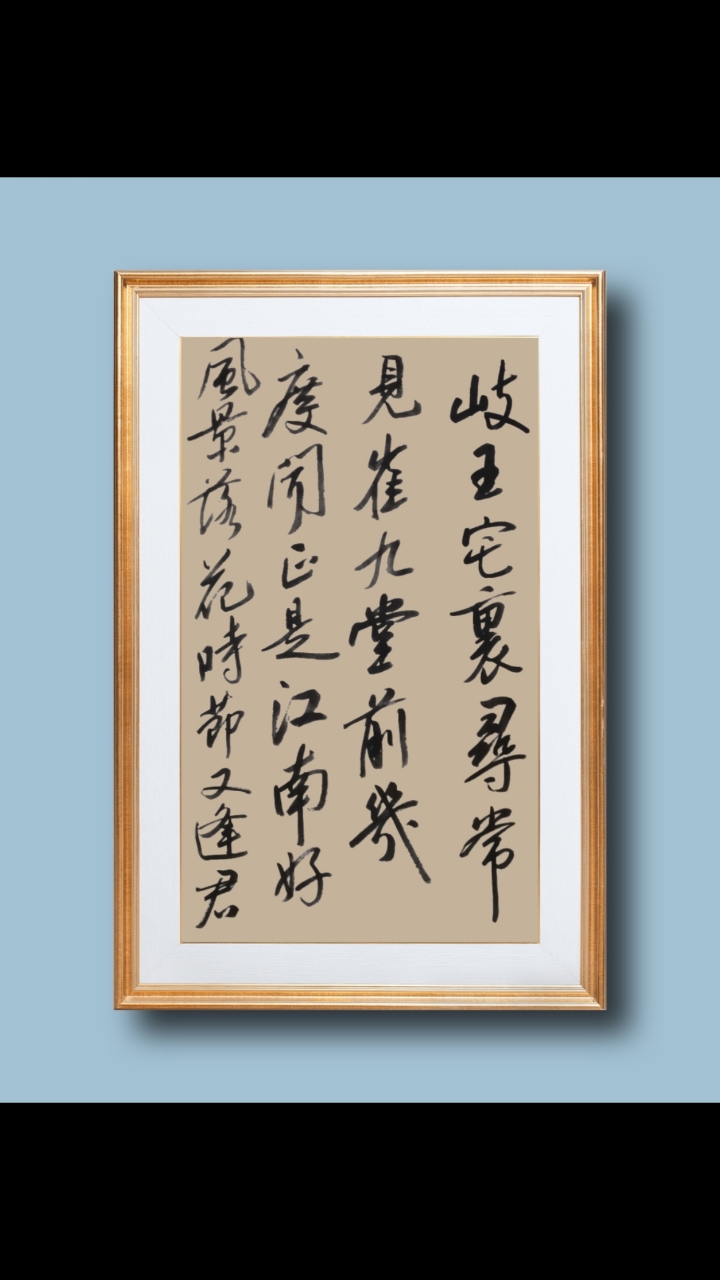 岐王宅裏尋常
見崔九堂前幾
度聞正是江南好
風景落花時節又逢君